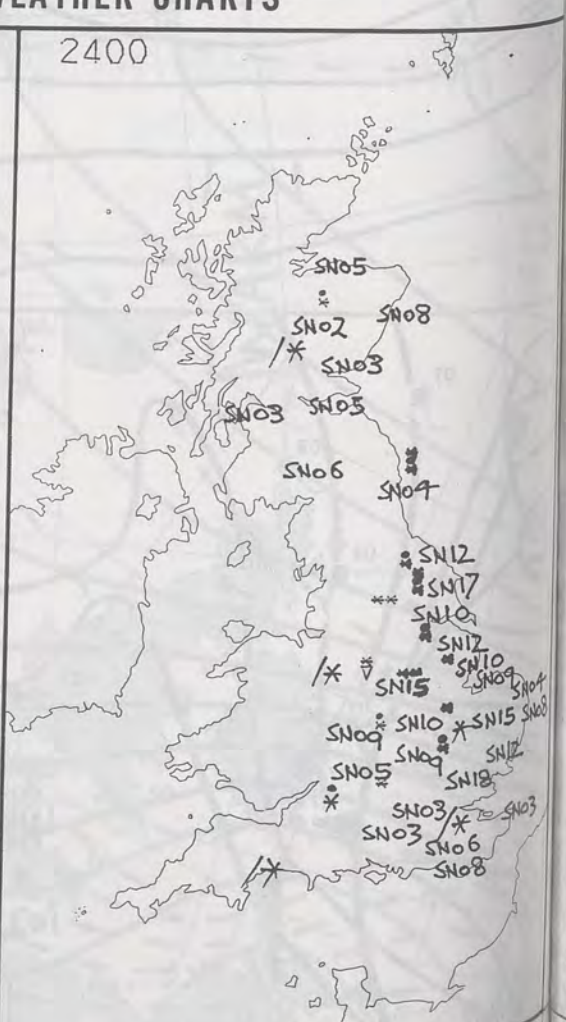 WEATHER CHARTS
2400
SN05
SN02
SN08
SN03
SN03
SN05
SN06
SN04
SN12
SN17
SN10
SN12
SN10
SN15
SN09
SN04
SN10
SN15
SN08
SN09
SN09
SN12
SN05
SN18
SN03
SN03
SN03
SN06
SN08